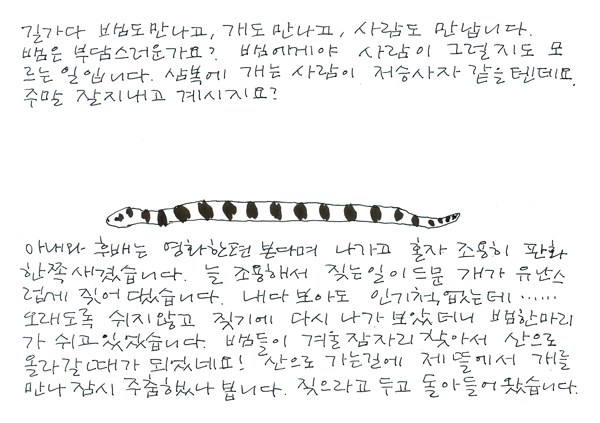 길가다 뱀도만나고, 개도 만나고, 사람도 만납니다.
뱀은 부담스러운가요? 뱀에게야 사람이 그럴지도 모
르는일입니다. 삼복에 개는 사람이 저승사자 같을텐데요.
주말 잘지내고 계시지요?
아내와 후배는 영화한편 본다며 나가고 혼자 조용히 판화
한쪽새겼습니다. 늘 조용해서 짖는일이드문 개가 유난스
럽게 짖어 댔습니다. 내다 보아도 인기척없는데……
오래도록 쉬지않고 짖기에 다시 나가 보았더니 뱀한마리
가 쉬고있었습니다. 뱀들이 겨울잠자리 찾아서 산으로
올라갈때가 되었네요! 산으로 가는길에 제뜰에서 개를
만나 잠시 주춤했나 봅니다. 짖으라고 두고 돌아들어왔습니다.